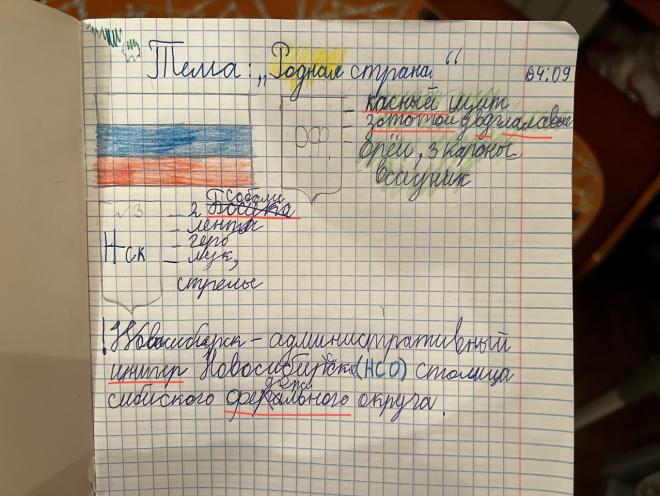 Тема: „Родная страна“ 04.09
- касный щит
- зототой двдглавые
- орёл, 3 кароны
всадник
РФ
- 2 Соболи
- лента
- герб
- лук,
стрелы
Нск
! Новосибирск - административный
центер Новосибирска (НСО) столица
сибиского федерального округа.